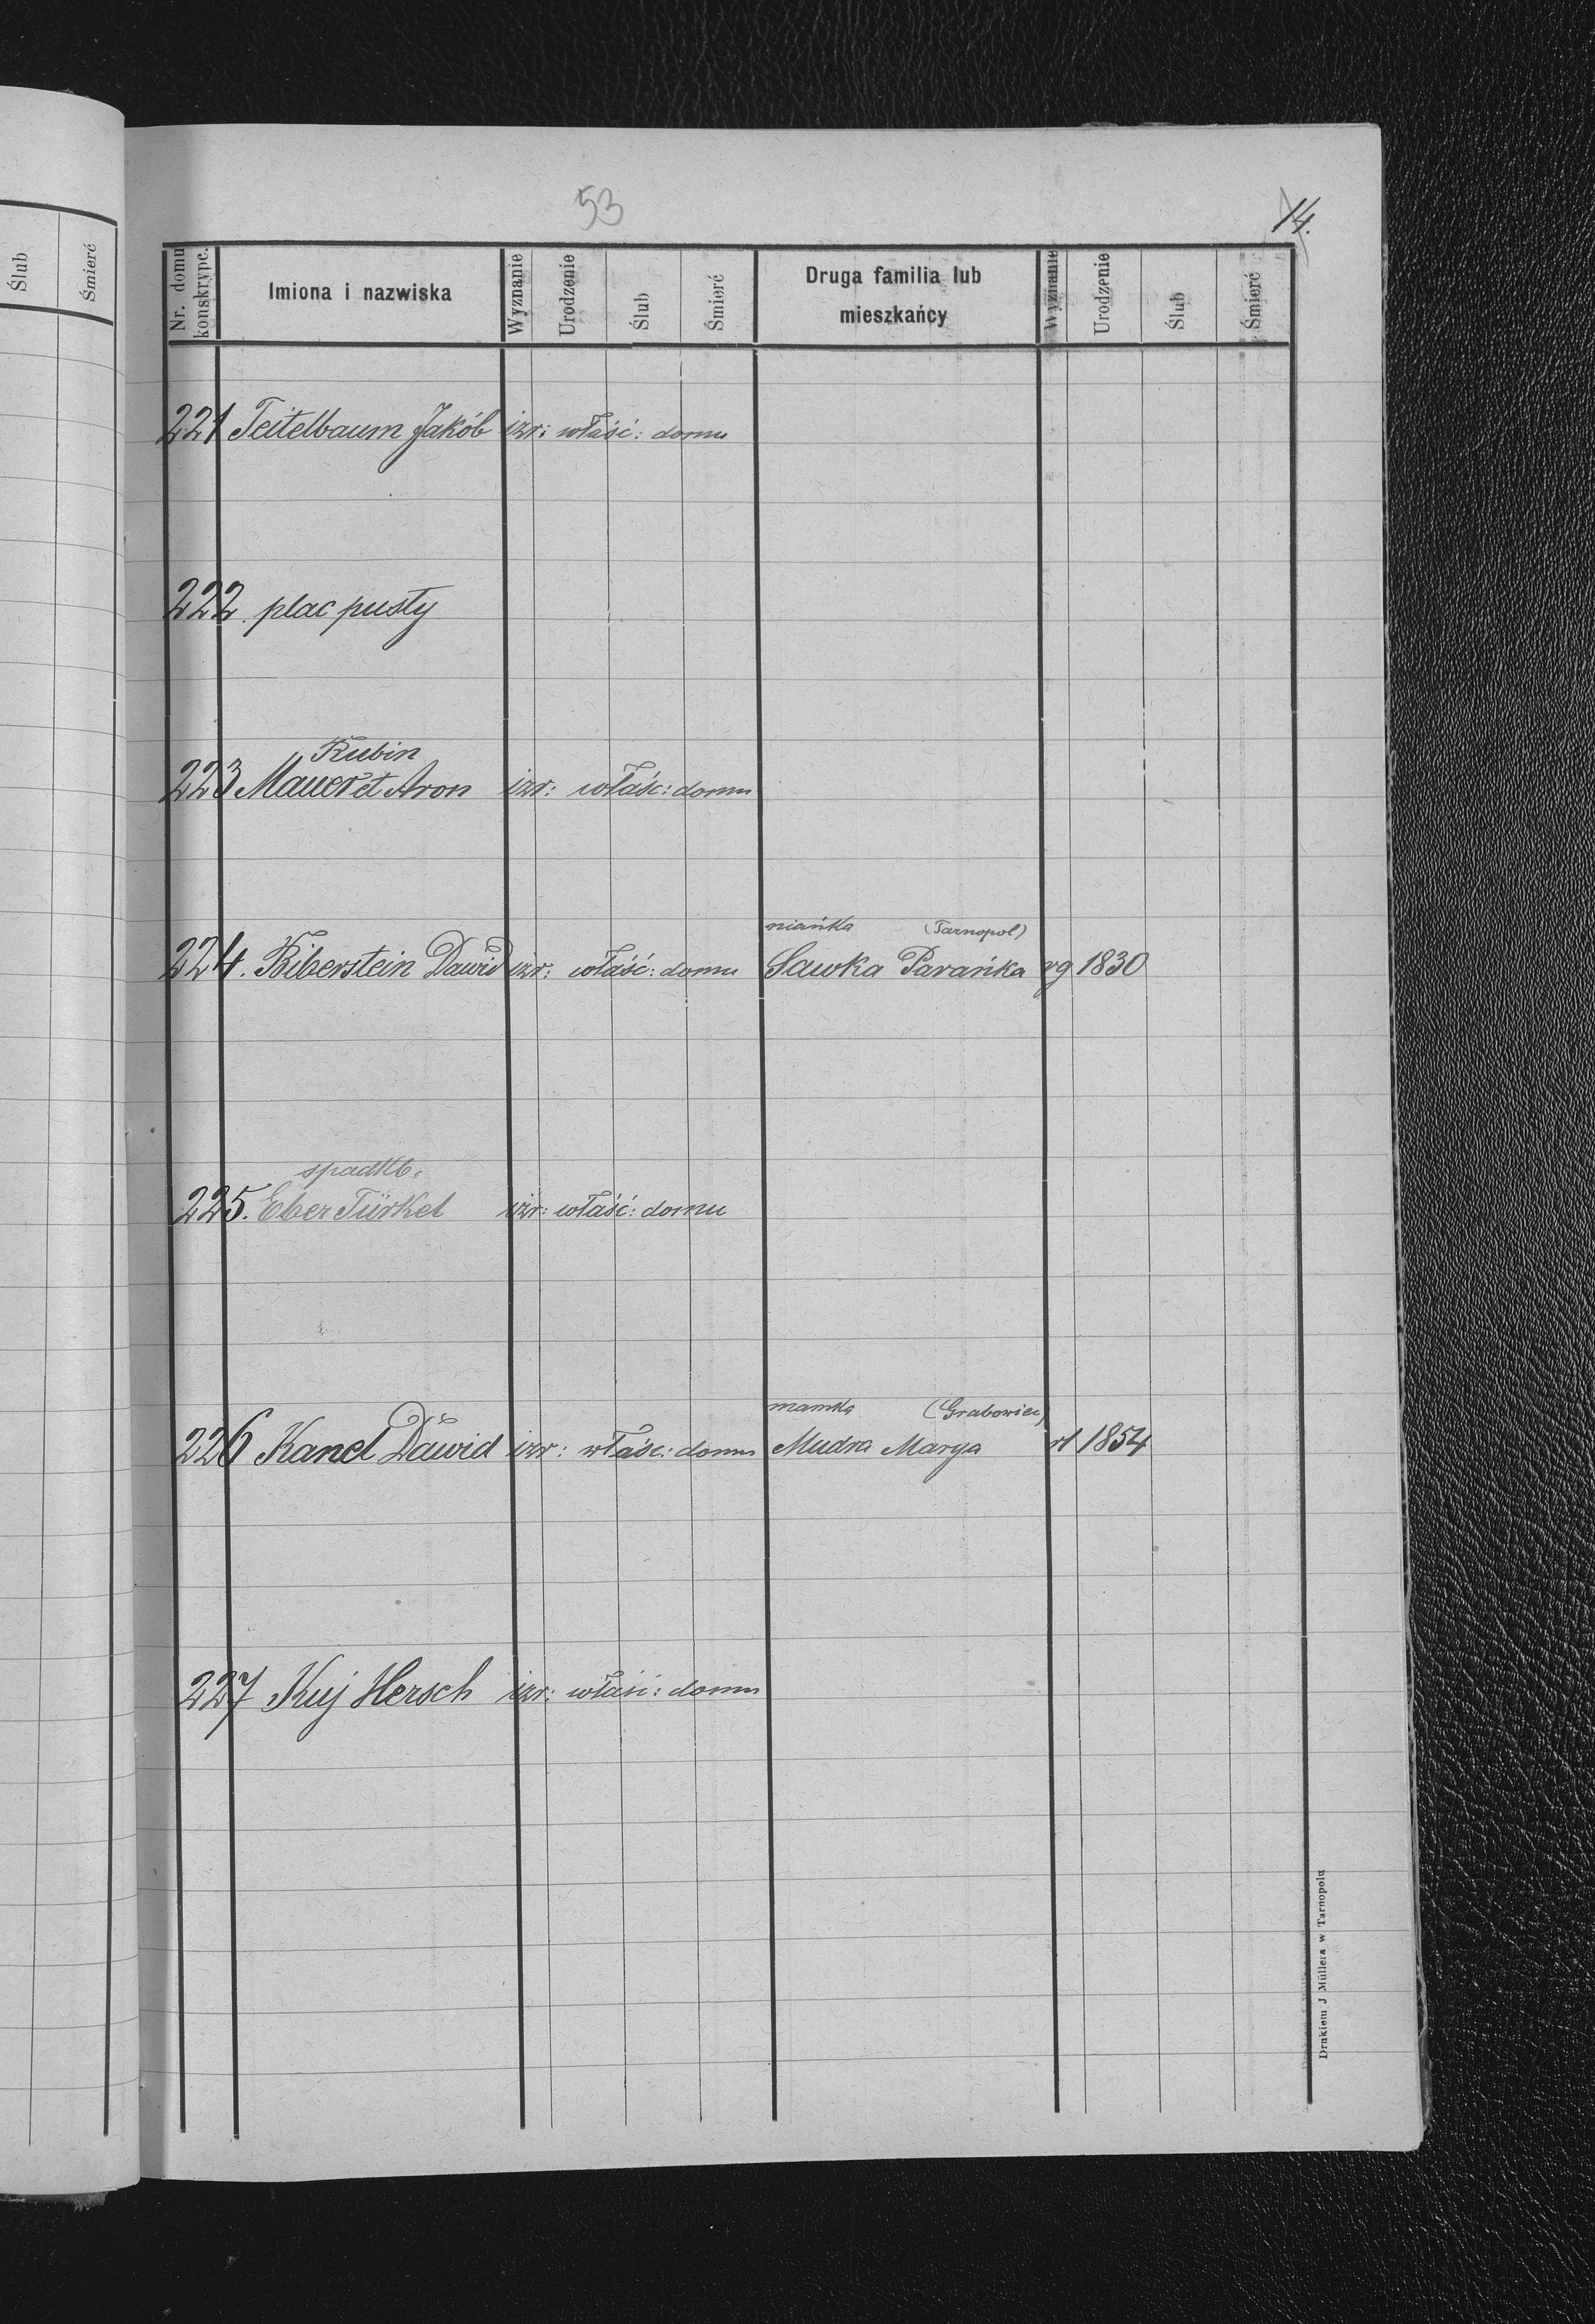 53
14.
Ślub
Śmierć
Nr. domu konskrypc.
Imiona i nazwiska
Wyznanie
Urodzenie
Ślub
Śmierć
Druga familia lub mieszkańcy
Wyznanie
Urodzenie
Ślub
Śmierć
221 Teitelbaum Jakób izr: właść: domu
222. plac pusty
Rubin
223 Mauer et Aron izr: właśc: domu
niańka (Tarnopol)
224. Biberstein Dawid izr: właść: domu Sawka Parańka rg 1830
spadkb:
225. Eber Türkel izr: właść: domu
mamka (Grabowiec)
226 Kanel Dawid izr: właśc: domu Mudra Marya rl 1854
227 Kuj Hersch izr: właść: domu
Drukiem J Müllera w Tarnopolu